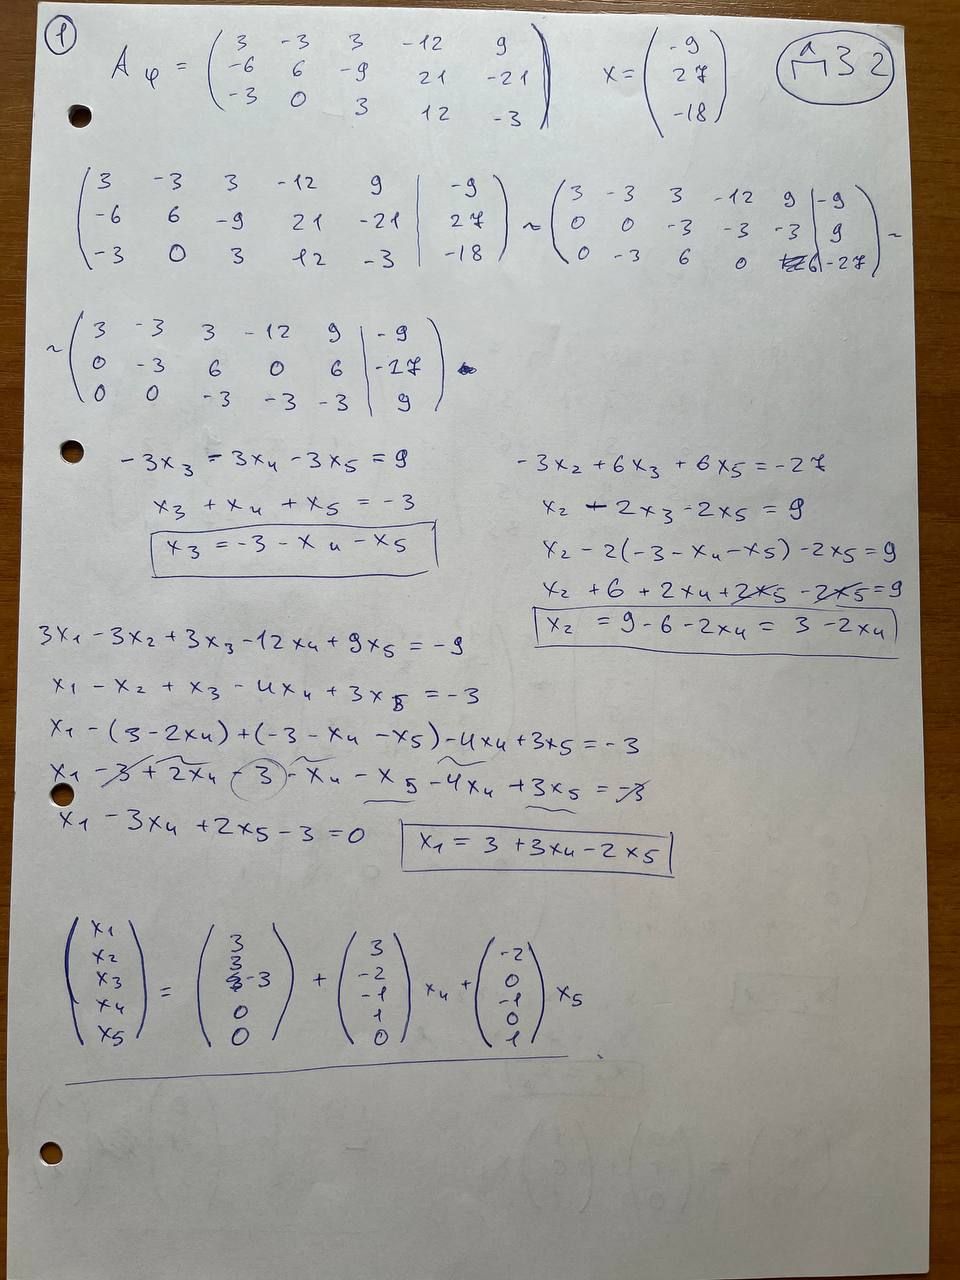 1
A φ = ( 3 -3 3 -12 9 ) x = ( -9 ) ДЗ 2
( -6 6 -9 21 -21 ) ( 27 )
( -3 0 3 12 -3 ) ( -18 )
( 3 -3 3 -12 9 | -9 ) ~ ( 3 -3 3 -12 9 | -9 ) ~
( -6 6 -9 21 -21 | 27 ) ( 0 0 -3 -3 -3 | 9 )
( -3 0 3 12 -3 | -18 ) ( 0 -3 6 0 6 | -27 )
~ ( 3 -3 3 -12 9 | -9 )
( 0 -3 6 0 6 | -27 )
( 0 0 -3 -3 -3 | 9 )
-3x3 - 3x4 - 3x5 = 9
x3 + x4 + x5 = -3
x3 = -3 - x4 - x5
-3x2 + 6x3 + 6x5 = -27
x2 - 2x3 - 2x5 = 9
x2 - 2(-3 - x4 - x5) - 2x5 = 9
x2 + 6 + 2x4 + 2x5 - 2x5 = 9
x2 = 9 - 6 - 2x4 = 3 - 2x4
3x1 - 3x2 + 3x3 - 12x4 + 9x5 = -9
x1 - x2 + x3 - 4x4 + 3x5 = -3
x1 - (3 - 2x4) + (-3 - x4 - x5) - 4x4 + 3x5 = -3
x1 - 3 + 2x4 - 3 - x4 - x5 - 4x4 + 3x5 = -3
x1 - 3x4 + 2x5 - 3 = 0
x1 = 3 + 3x4 - 2x5
( x1 ) ( 3 ) ( 3 ) ( -2 )
( x2 ) ( 3 ) ( -2 ) ( 0 )
( x3 ) = ( -3 ) + ( -1 ) x4 + ( -1 ) x5
( x4 ) ( 0 ) ( 1 ) ( 0 )
( x5 ) ( 0 ) ( 0 ) ( 1 )